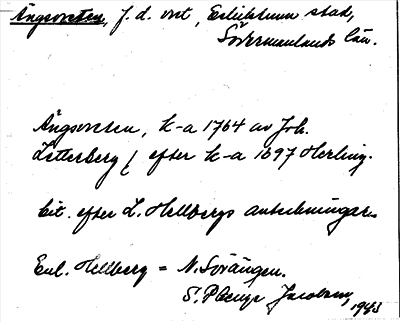 Ängsvreten, f.d. vret, Eskilstuna stad,
Södermanlands län.
Ängsvreten, k-a 1764 av Joh.
Zetterberg / efter k-a 1697 Herling.
cit. efter L. Hellbergs anteckningar.
Enl. Hellberg = N. Sörängen.
Jacobsen, 1943